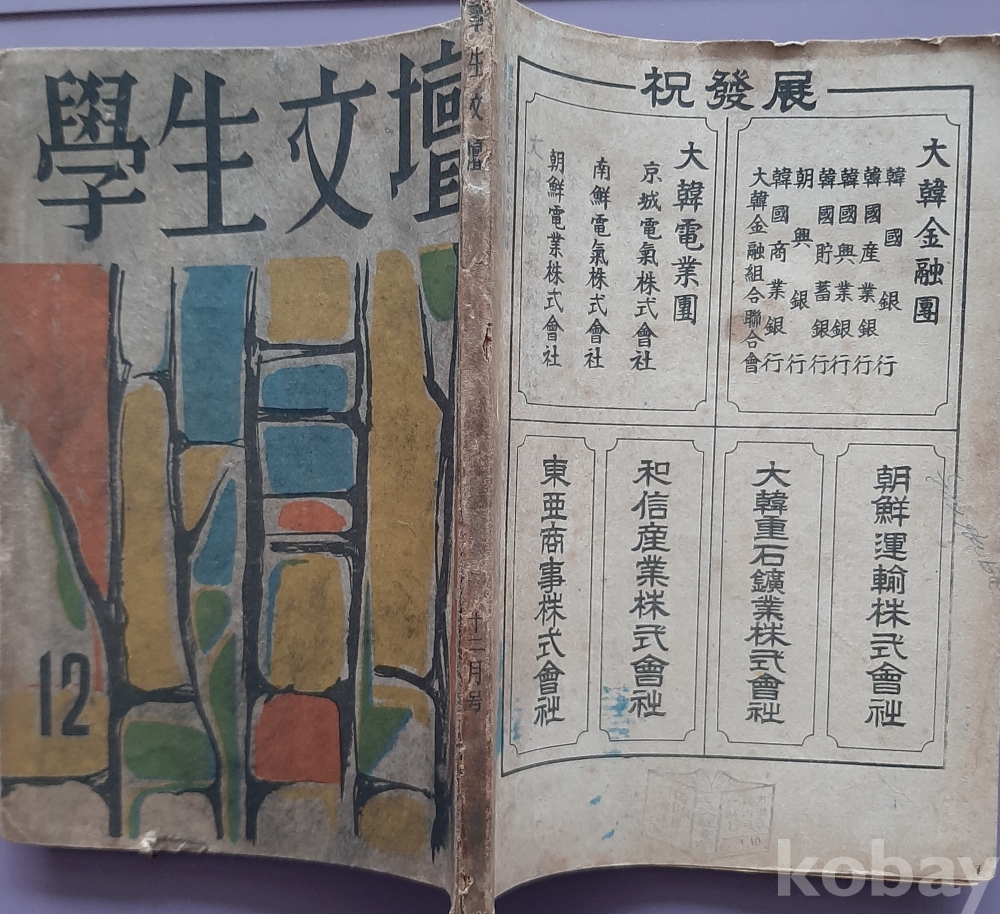 學生文壇
12
學生文壇
十二月号
祝發展
大韓金融團
韓國銀行
韓國産業銀行
韓國興業銀行
韓國貯蓄銀行
朝興銀行
韓國商業銀行
大韓金融組合聯合會
大韓電業團
京城電氣株式會社
南鮮電氣株式會社
朝鮮電業株式會社
朝鮮運輸株式會社
大韓重石鑛業株式會社
和信産業株式會社
東亜商事株式會社
kobay